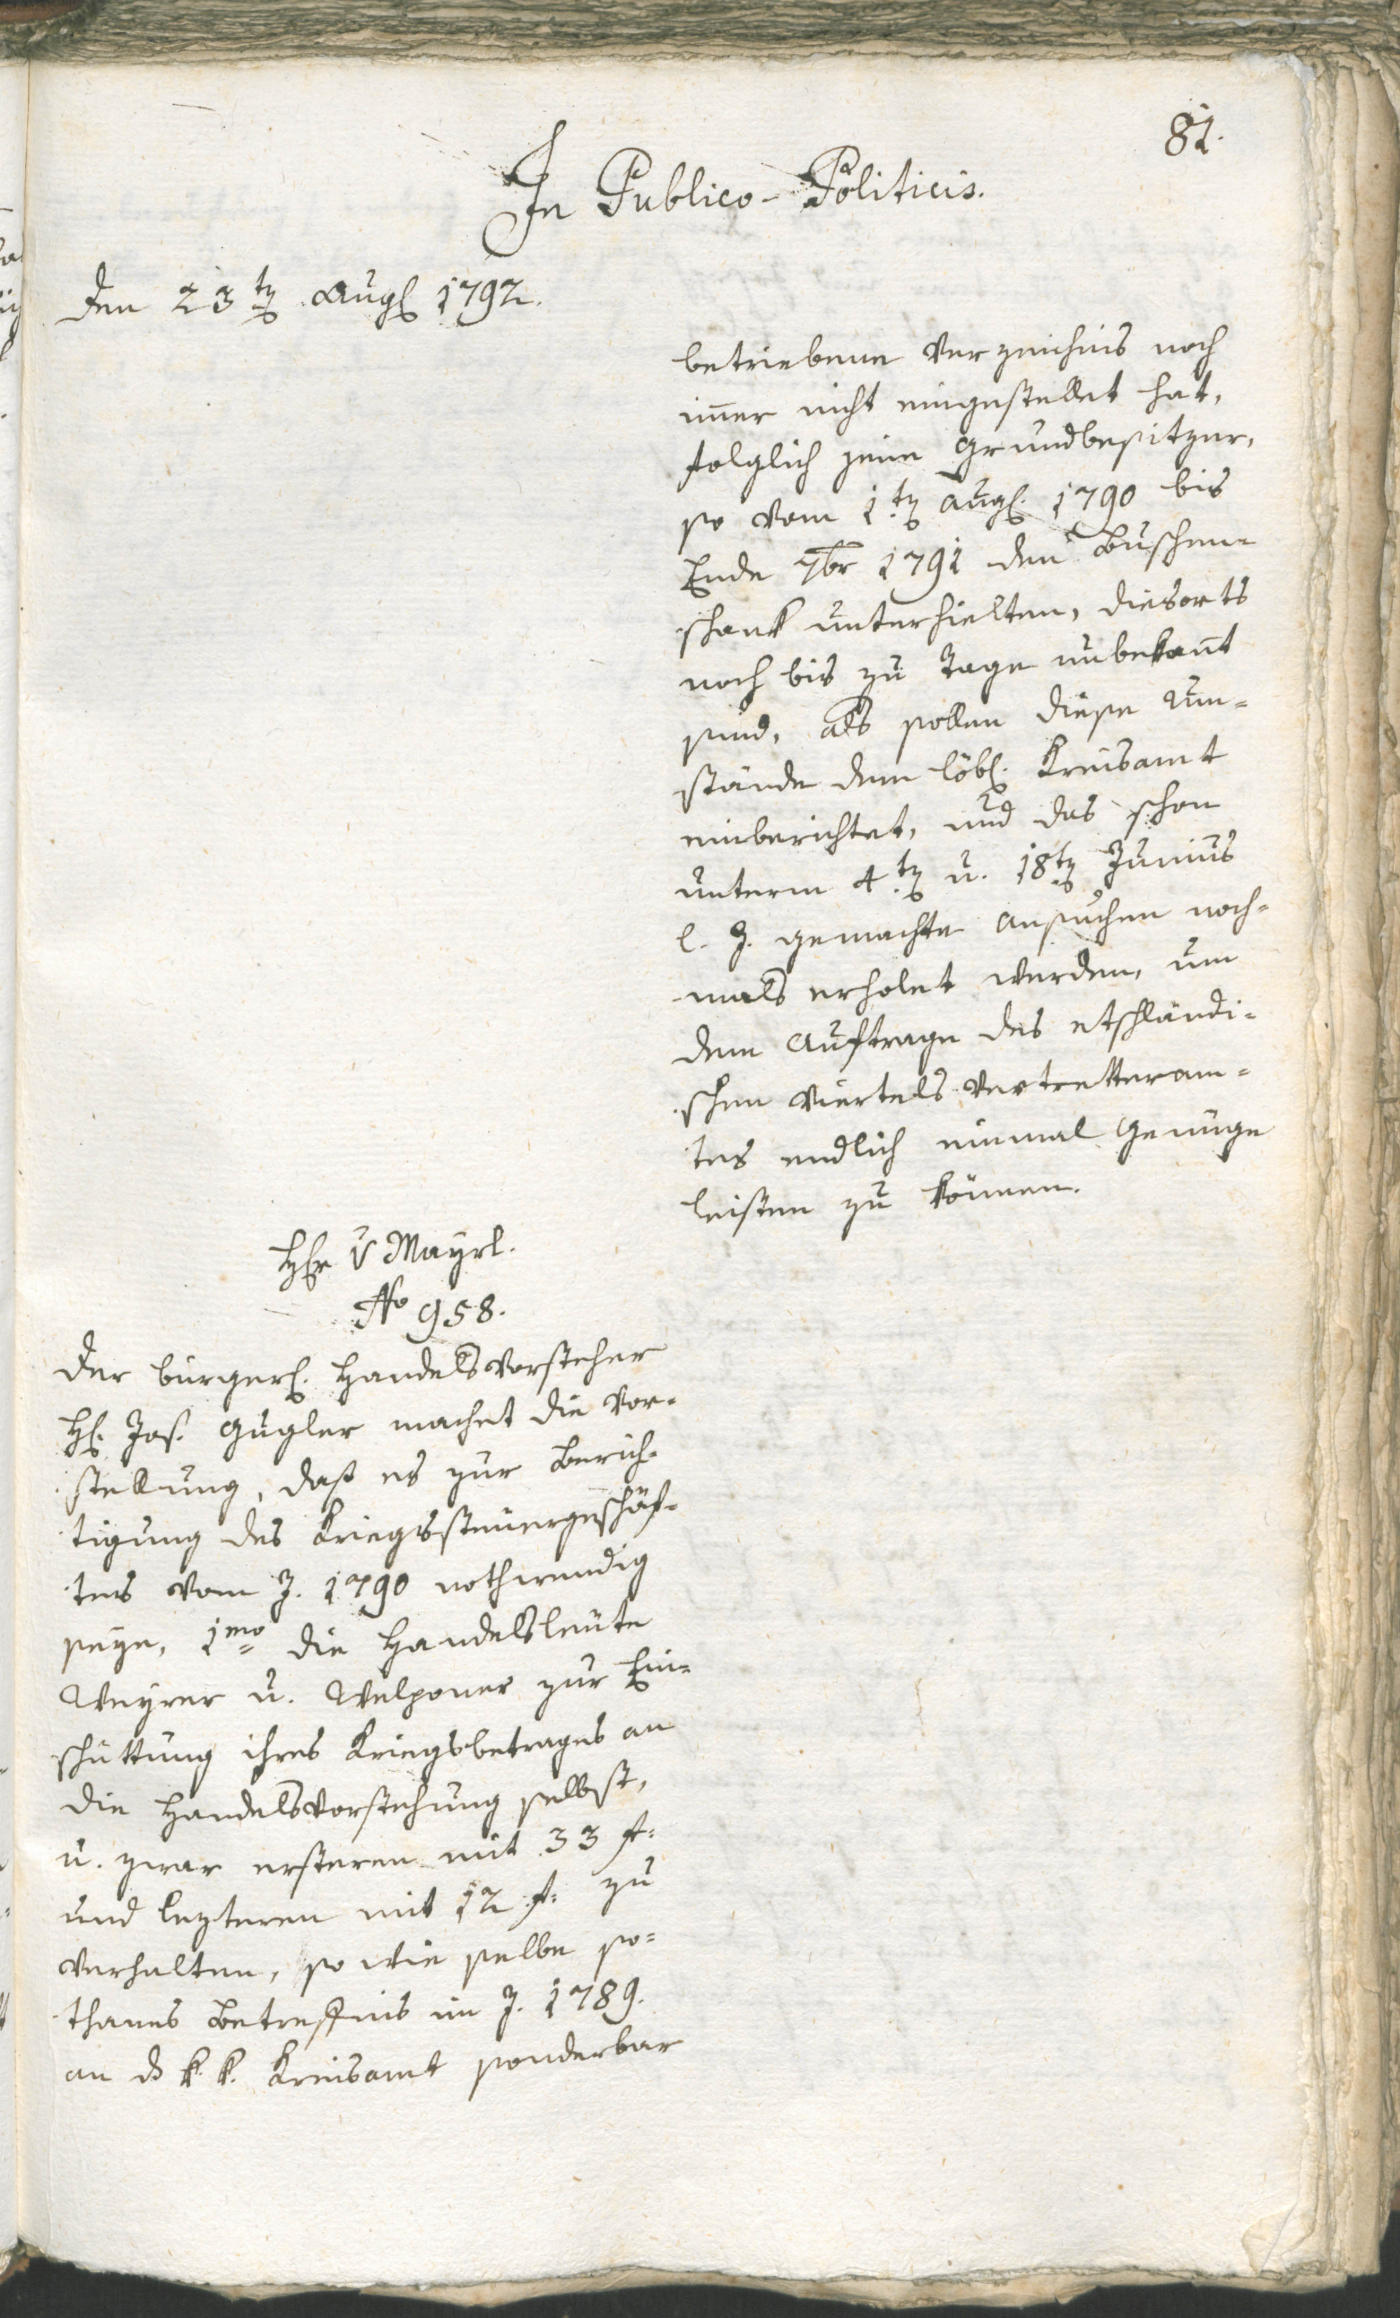 81.
In Publico-Politicis.
den 23ten Augl 1792.
betriebene Verzeichnis noch
immer nicht eingestellet hat,
folglich jene Grundbesitzer,
so vom 1ten Augl. 1790 bis
Ende 7br 1791 den Buschen-
schank unterhielten, diesorts
noch bis zu Tage unbekannt
sind, als sollen diese Um-
stände dem löbl. Kreisamt
einberichtet, und das schon
unterm 4ten u. 18ten Junius
l. J. gemachte Ansuchen noch-
mals erholet werden, um
dem Auftrage des etschländi-
schen Viertels Vertretteram-
tes endlich einmal Genüge
leisten zu können.
Hr v Mayrl.
No 958.
Der bürgerl. Handelsvorsteher
Hl. Jos. Gugler machet die Vor-
stellung, daß es zur Berich-
tigung des Kriegssteuergeschäf-
tes vom J. 1790 nothwendig
seye, 1mo die Handelsleute
Weyrer u. Welponer zur Ein-
schüttung ihres Kriegsbetrages an
die Handelsvorstehung selbst,
u. zwar ersteren mit 33 f:
und lezteren mit 12 f: zu
verhalten, so wie selbe so-
thanes Betreffnis im J. 1789.
an d k. k. Kreisamt sonderbar